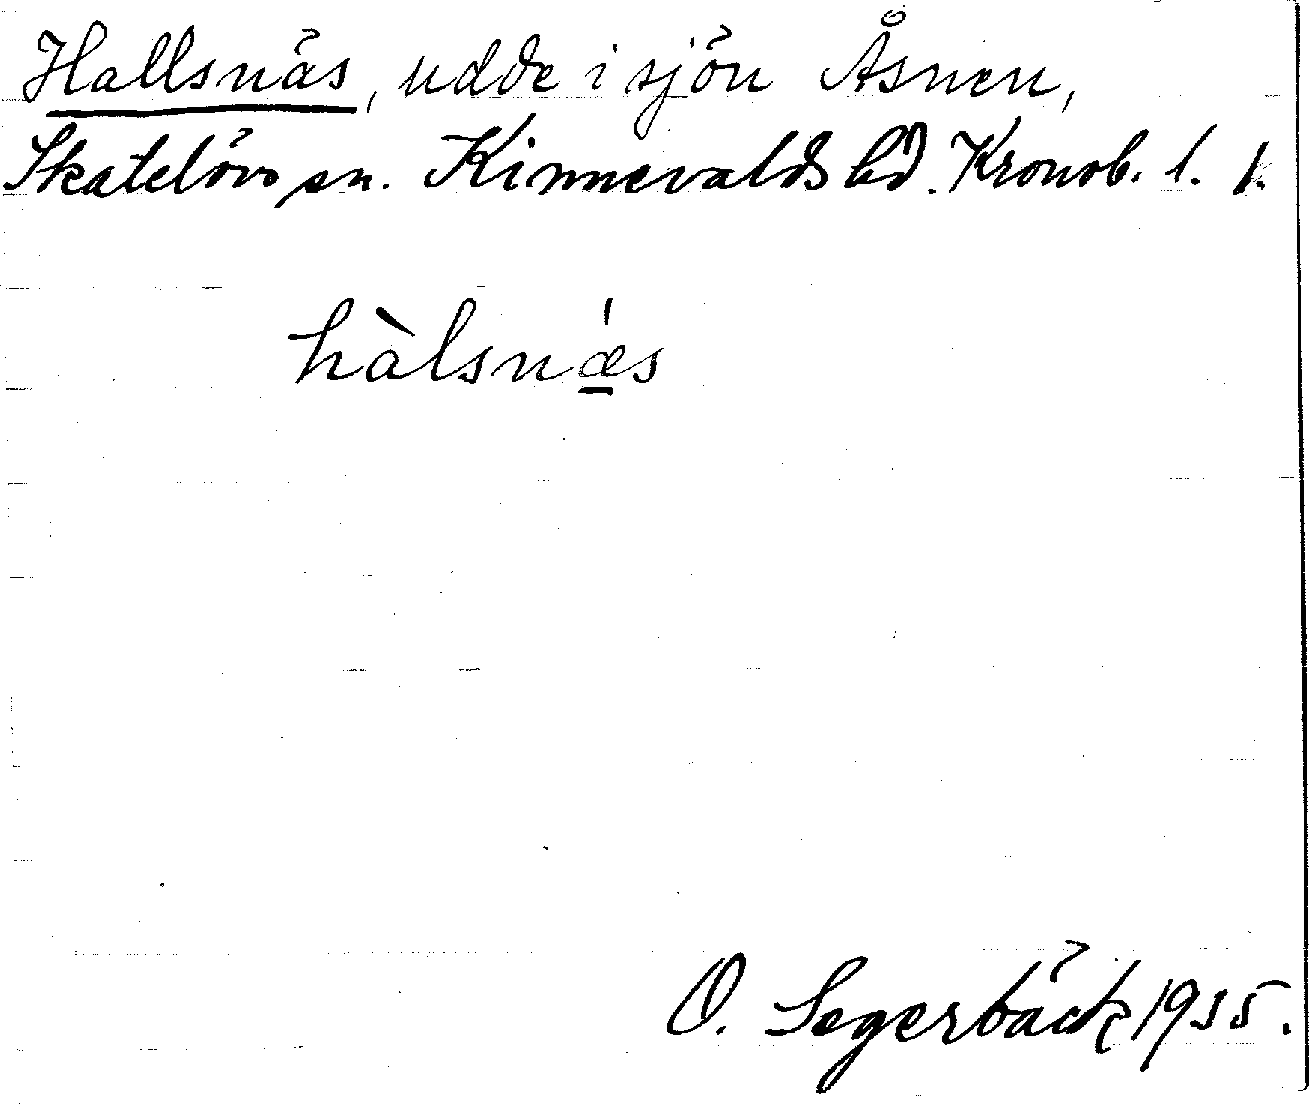 Hallsnäs, udde i sjön Åsnen,
Skatelövs sn. Kinnevalds hd. Kronob. l. 1.
hàlsnǽ̲s
O. Segerbäck 1935.